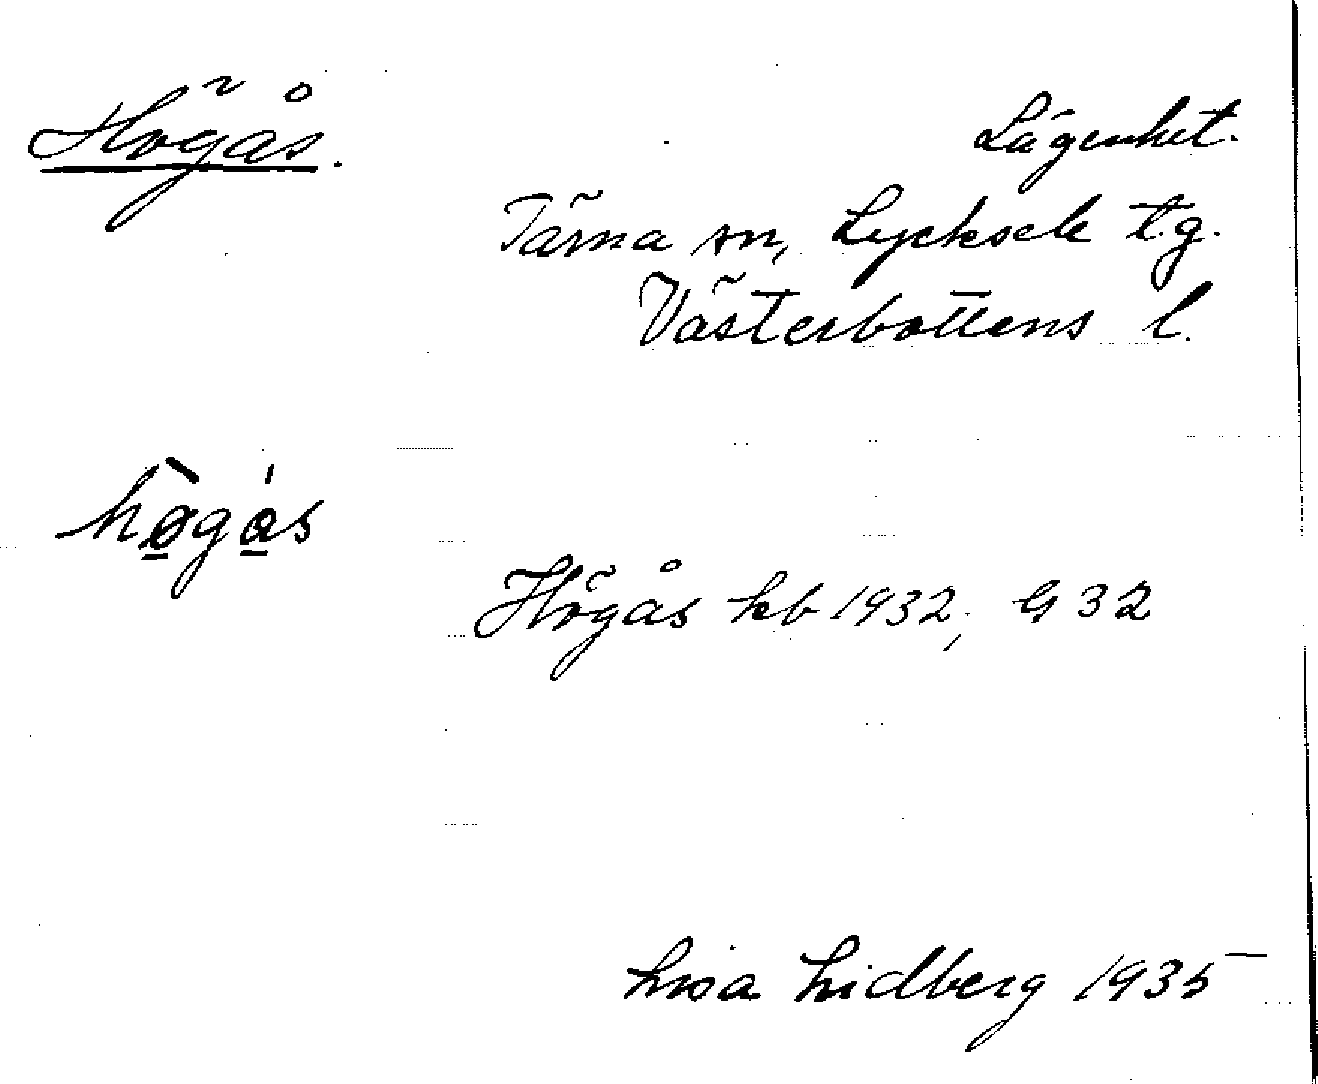 Högås.
Lägenhet.
Tärna sn, Lycksele t.g.
Västerbottens l.
hø̱̀gá̱s
Högås kb 1932, G 32
Lisa Lidberg 1935